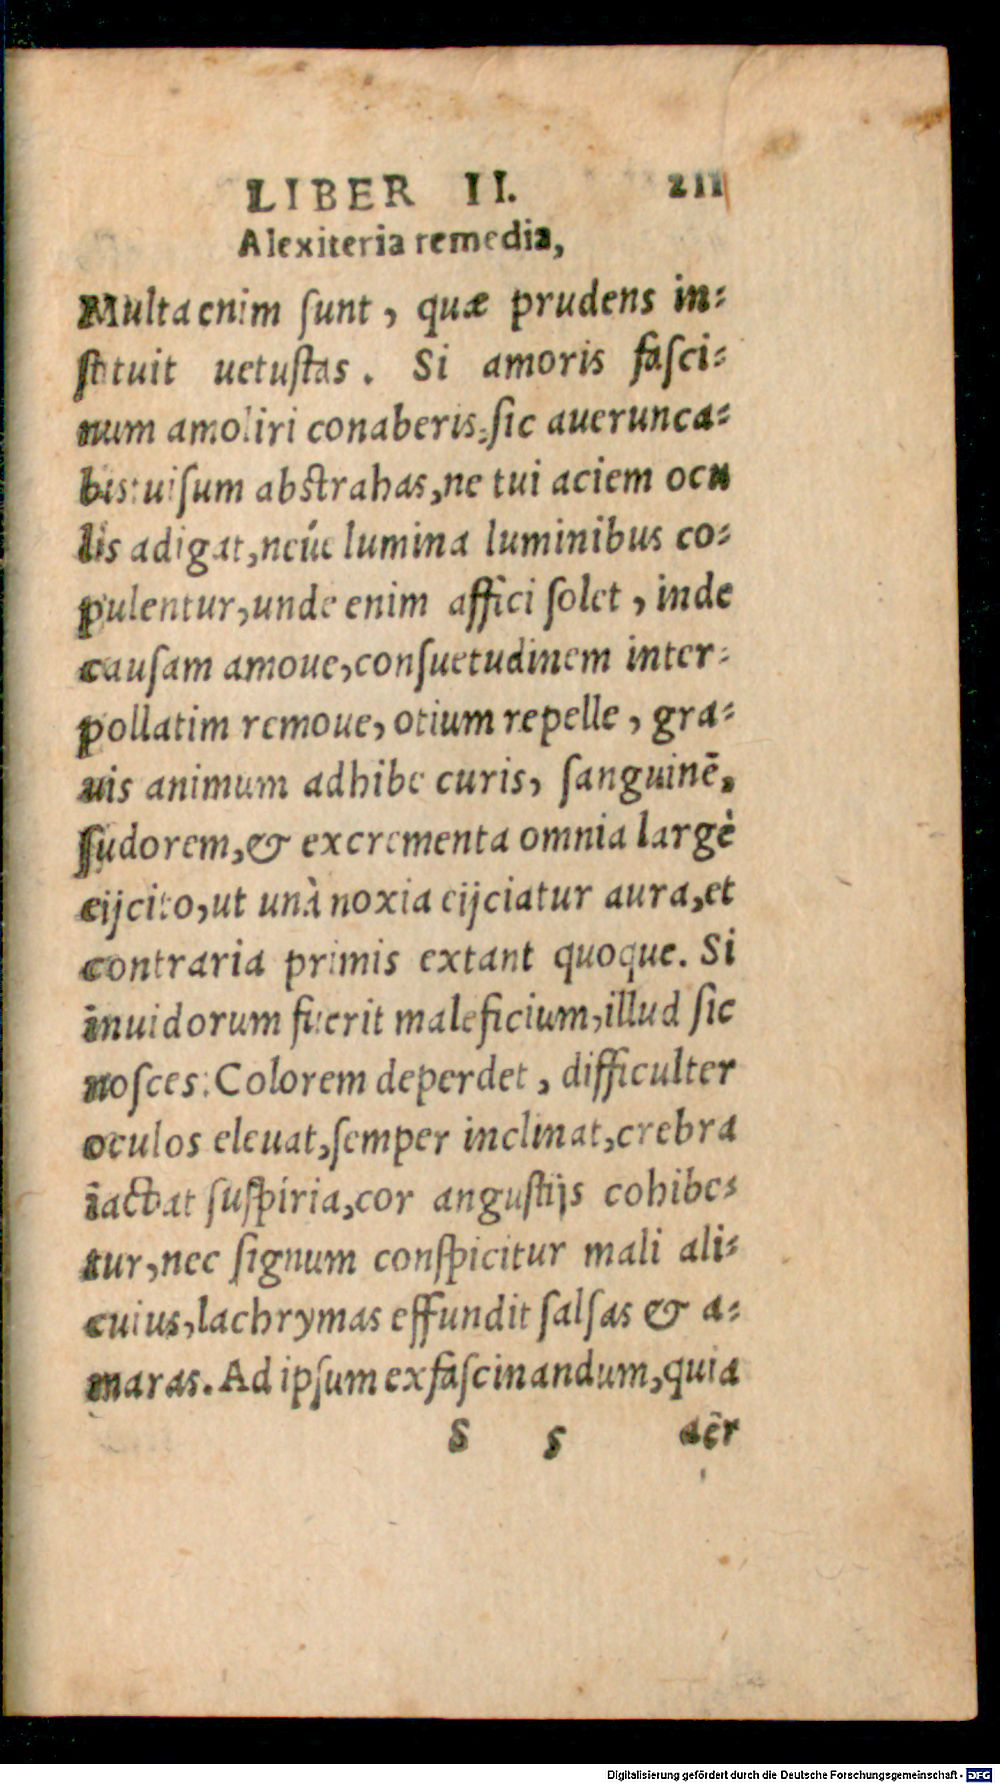 LIBER II. 211
Alexiteria remedia,
Multa enim ſunt, quæ prudens in⸗
ſtituit uetuſtas. Si amoris faſci⸗
num amoliri conaberis, ſic auerunca⸗
bis: uiſum abſtrahas, ne tui aciem ocu
lis adigat, neúe lumina luminibus co⸗
pulentur, unde enim affici ſolet, inde
cauſam amoue, conſuetudinem inter⸗
pollatim remoue, otium repelle, gra⸗
uis animum adhibe curis, ſanguinē,
ſudorem, & excrementa omnia largè
eijcito, ut unà noxia eijciatur aura, et
contraria primis extant quoque. Si
inuidorum fuerit maleficium, illud ſic
noſces: Colorem deperdet, difficulter
oculos eleuat, ſemper inclinat, crebra
iactat ſuſpiria, cor anguſtijs cohibe⸗
tur, nec ſignum conſpicitur mali ali⸗
cuius, lachrymas effundit ſalſas & a⸗
maras. Ad ipſum exfaſcinandum, quia
S s aër
Digitalisierung gefördert durch die Deutsche Forschungsgemeinschaft - DFG